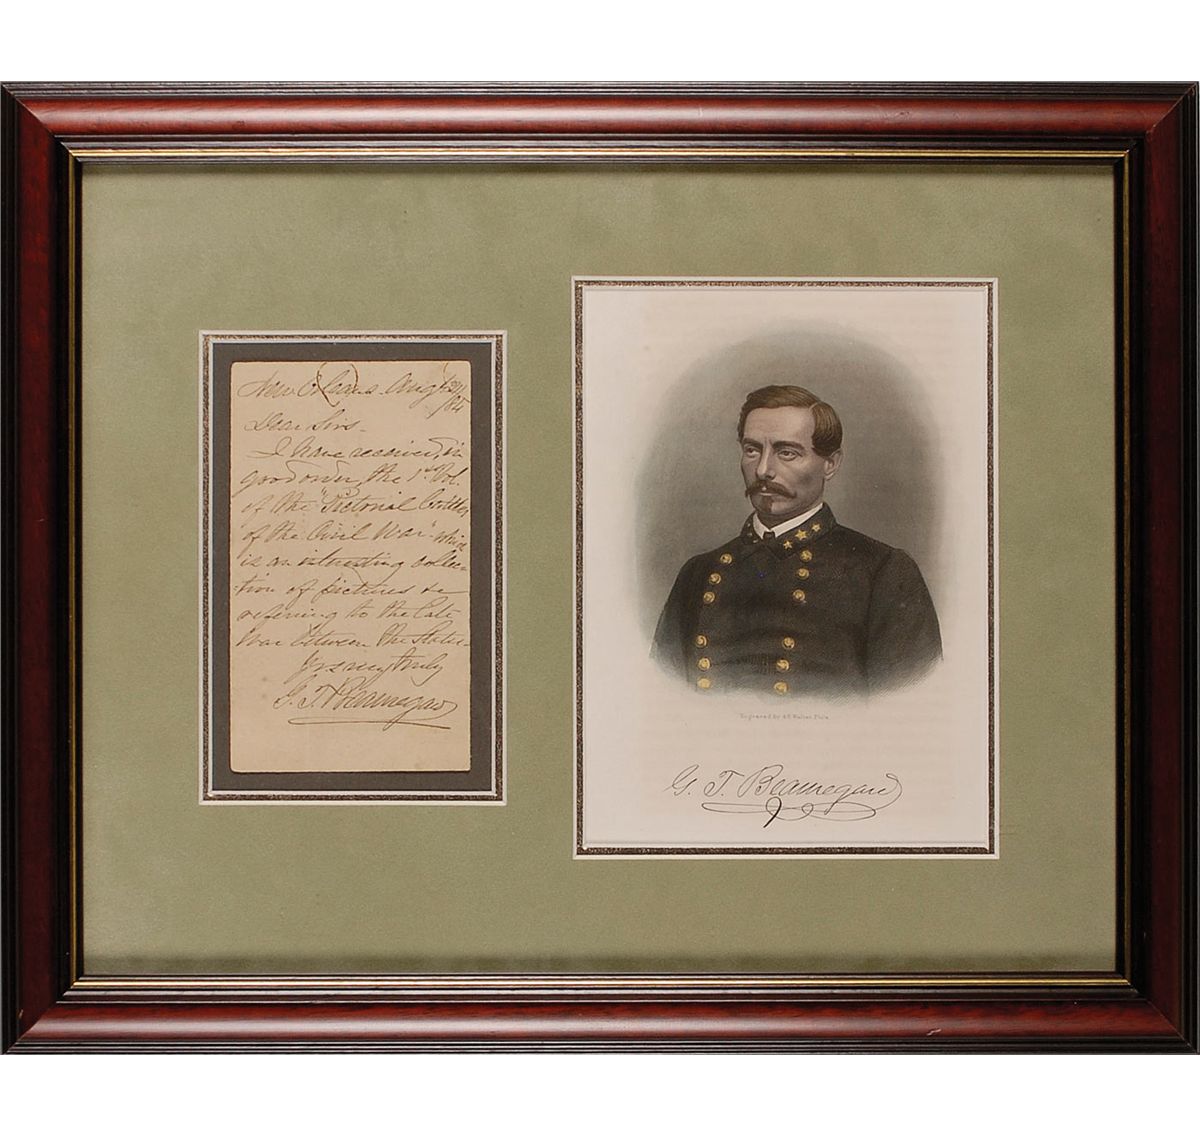 New Orleans Aug
/84
Dear Sirs-
I have received, in
good order, the 1st Vol.
of the "Pictorial Battles
of the Civil War" which
is an interesting collec-
tion of pictures &c
referring to the late
War between the States-
Yrs very truly
G. T. Beauregard
Engraved by A.B. Walter Phila.
G. T. Beauregard